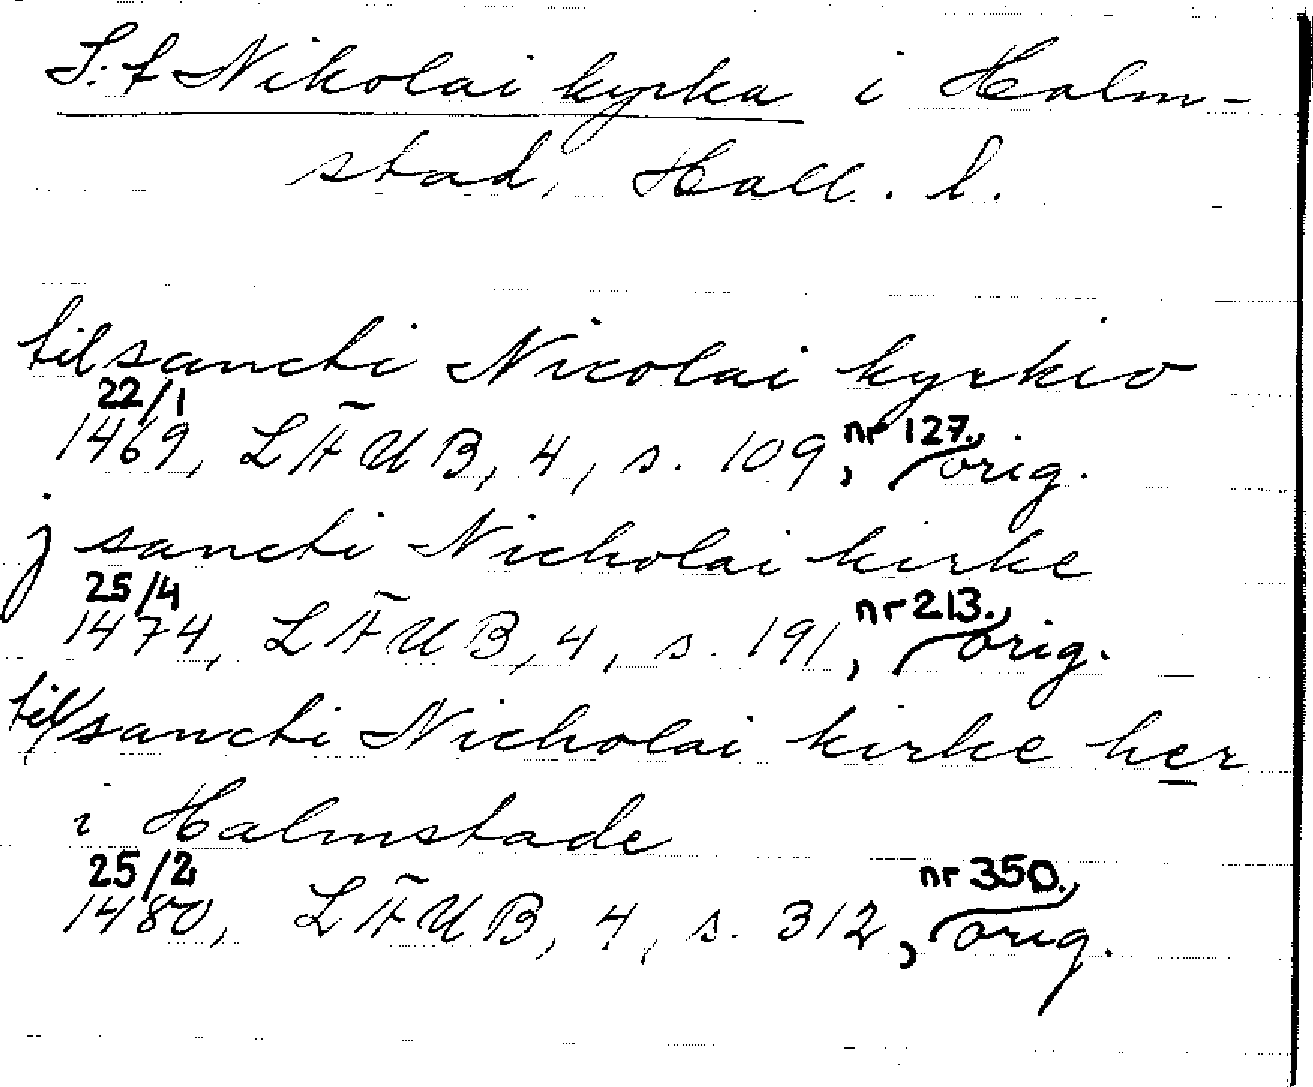 S:t Nikolai kyrka i Halm-
stad, Hall. l.
til sancti Nicolai kyrkio
22/1
1469, LÄUB, 4, s. 109, nr 127., orig.
j sancti Nicholai kirke
25/4
1474, LÄUB, 4, s. 191, nr 213., orig.
til sancti Nicholai kirke her
i Halmstade
25/2
1480, LÄUB, 4, s. 312, nr 350., orig.